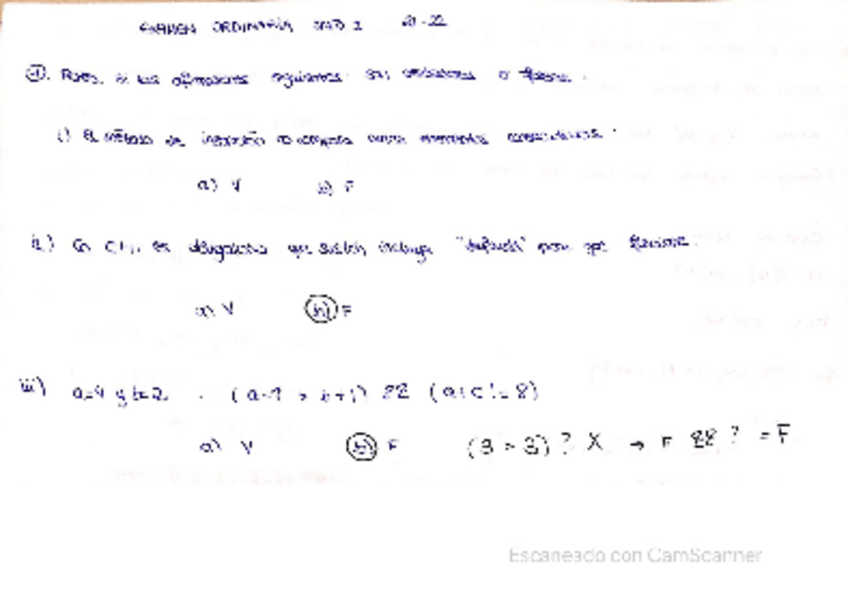 EXAMEN ORDINARIA 21-22
si las afirmaciones siguientes son verdaderas o falsas.
i) El método de inserción compara entre elementos consecutivos.
a) V b) F
ii) En C++, es obligatorio que switch incluya "default" para que funcione
a) V b) F
iii) a=4 y b=2 (a-1 > b+1) && (a+c != 8)
a) V b) F (3 > 3)? X → F && ? = F
Escaneado con CamScanner